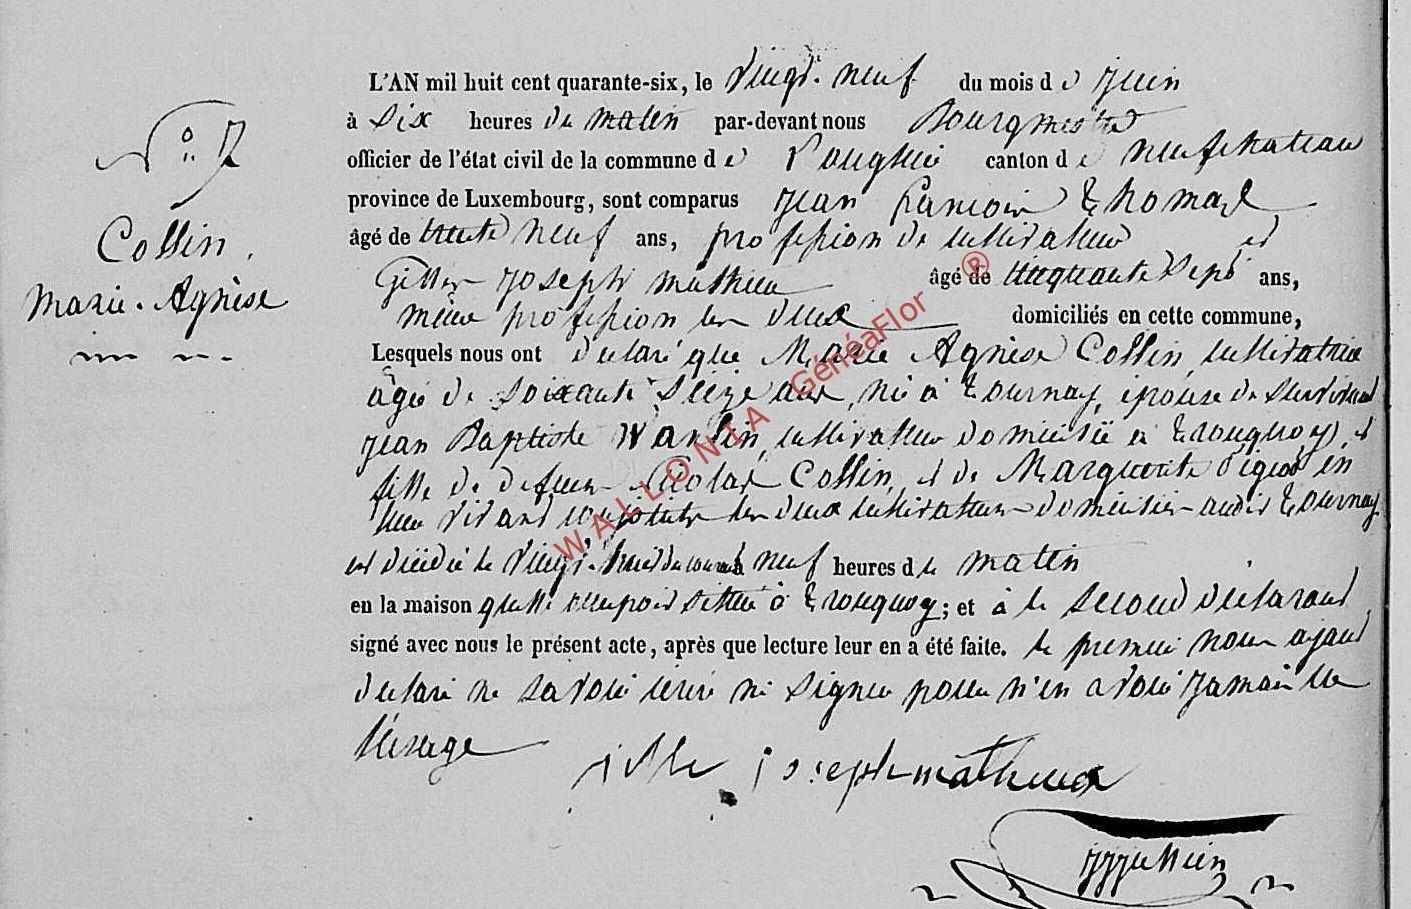 L'AN mil huit cent quarante-six, le Vingt-neuf du mois de Juin
N° 7
à Six heures du matin par-devant nous Bourgmestre
officier de l'état civil de la commune de Longlier canton de neufchateau
province de Luxembourg, sont comparus Jean françois Thomas
Collin,
âgé de trente neuf ans, profession de cultivateur et
Marie-Agnèse
Gilles Joseph mathieu âgé de cinquante Sept ans,
même profession les deux domiciliés en cette commune,
Lesquels nous ont déclaré que Marie Agnèse Collin, cultivatrice
âgée de soixante Seize ans, née à Tournay, épouse de Survivant
Jean Baptiste Warlin, cultivateur domicilié à Tronquoy, et
fille de défunt Nicolas Collin, et de Marguerite en
leur vivant les deux cultivateurs domiciliés audit Tournay
est décédée le Vingt-huit du courant à neuf heures du matin
en la maison quelle occupoit située à Tronquoy; et à le Second déclarant
signé avec nous le présent acte, après que lecture leur en a été faite. le premier nous ayant
déclaré ne savoir écrire ni signer pour n'en avoir jamais eu
l'usage
Joseph mathieu
WALLONIA GénéaFlor ®